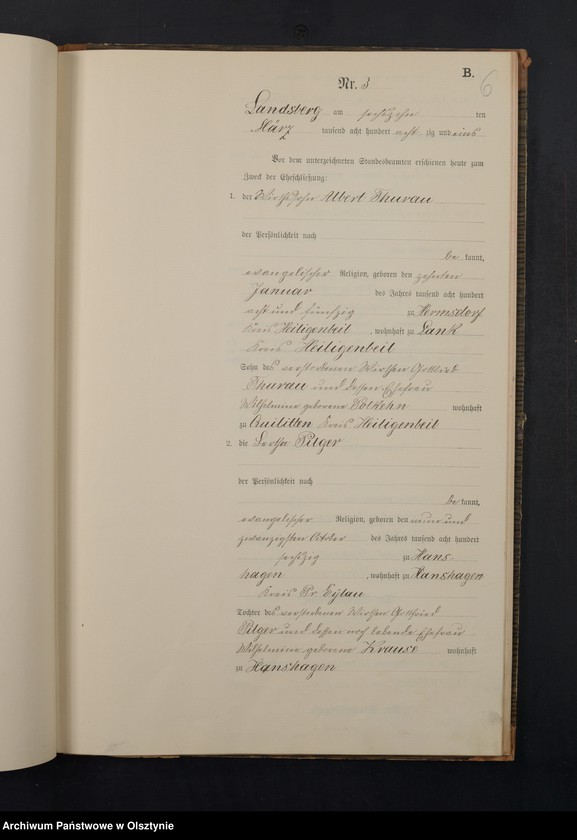 B.
6
Nr. 3
Landsberg am sechszehn ten
März tausend acht hundert acht zig und eins
Vor dem unterzeichneten Standesbeamten erschienen heute zum
Zweck der Eheschließung:
1. der Wirthssohn Albert Thurau
der Persönlichkeit nach
be kannt,
evangelischer Religion, geboren den zehnten
Januar des Jahres tausend acht hundert
acht und fünfzig zu Hermsdorf
Kreis Heiligenbeil, wohnhaft zu Lank
Kreis Heiligenbeil
Sohn des verstorbenen Wirthen Gottlieb
Thurau und dessen Ehefrau
Wilhelmine geborene wohnhaft
zu Quilitten Kreis Heiligenbeil
2. die Bertha Pilger
der Persönlichkeit nach
be kannt,
evangelischer Religion, geboren den neun und
zwanzigsten October des Jahres tausend acht hundert
sechszig zu Hans-
hagen, wohnhaft zu Hanshagen
Kreis Pr. Eylau
Tochter des verstorbenen Wirthen Gottfried
Pilger und dessen noch lebende Ehefrau
Wilhelmine geborene Krause wohnhaft
zu Hanshagen
Archiwum Państwowe w Olsztynie